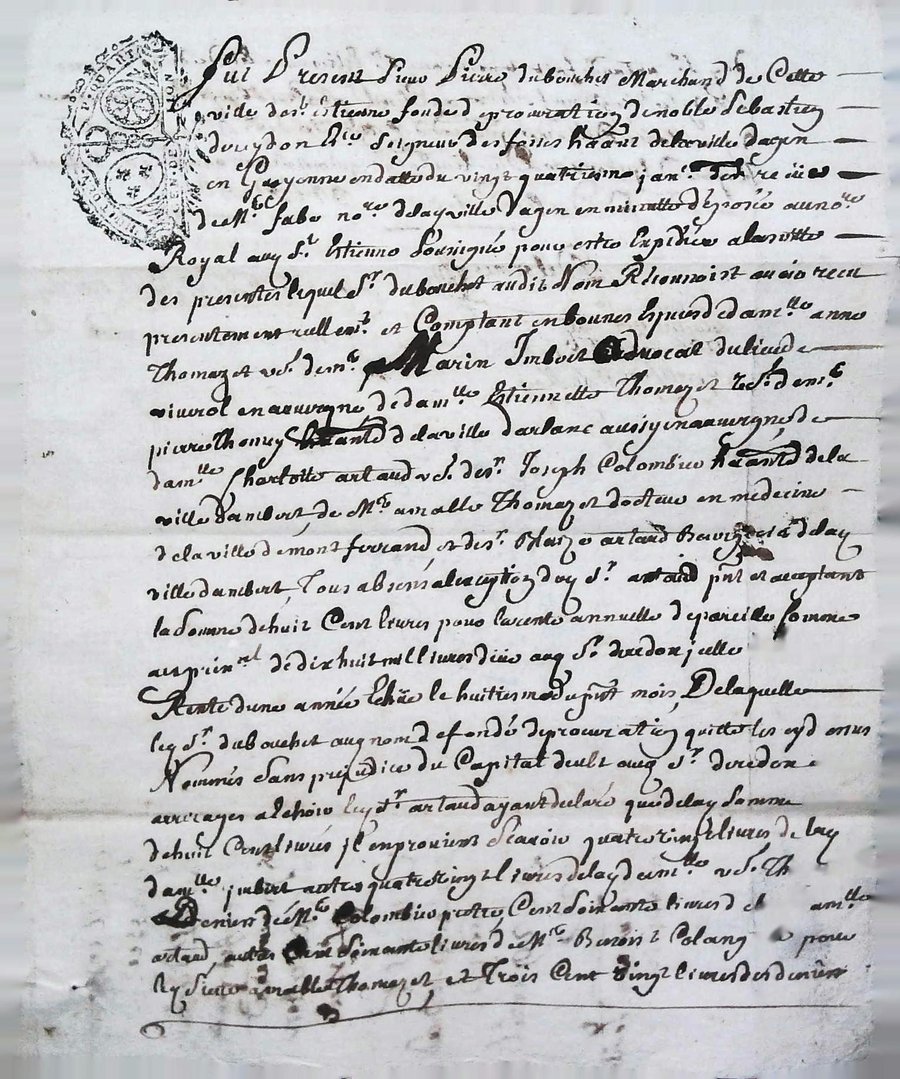 QUART
Fut Present Sieur Pierre dubouchet Marchand de Cette
ville de st Etienne fondé de procuration de noble Sebastien
deredon Seigneur des fosses haant de la ville dagen
en Guyenne en datte du vingt quatriesme janr dernier
de Me fabe nore de lad ville Dagen en minutte deposée au nore
Royal aud St Etienne soussigné pour estre Expediée a la suitte
des presentes lequel Sr dubouchet audit Nom Reconnoist avoir recu
presentement reellemt et Comptant en bonnes Espices de damlle anne
Thomazet ve de me Marin Imbert Advocat du lieu de
viverol en auvergne de damlle Estiennette Thomazet ve de me
pierre Thomey haante de la ville darlanc aussy en auvergne de
damlle Charlotte artaud ve de sr Joseph Colombier haante de la
ville dambert, de Me amable Thomazet docteur en medecine
de la ville de montferrand et de sr Blaize artaud Bourgeois de lad
ville dambert, Tous absens a lexception dud Sr artaud pnt et acceptant
la Somme de huit Cent livres pour la rente annuelle de pareille Somme
au prinal de dix huit mil livres diie aud Sr deredon jcelle
Rente dune année Echue le huitiesme du pnt mois, De laquelle
led Sr dubouchet aud nom de fondé de procuration quitte les cyd enus
Nommés Sans prejudice du Capital deub aud Sr deredon e
arrerages a Echoir led Sr artaud ayant declaré que de lad Somme
de huit Cent livres jl en provient Scavoir quatre vingt livres de lad
damlle jmbert autres quatre vingt livres de lad damlle ve Th
Deniers de Me Colombier Cent Soixante livres d amlle
artaud, autres Cent Soixante livres de Me Benoist Colang pour
led Sieur amable Thomazet et Trois Cent vingt livres des deniers